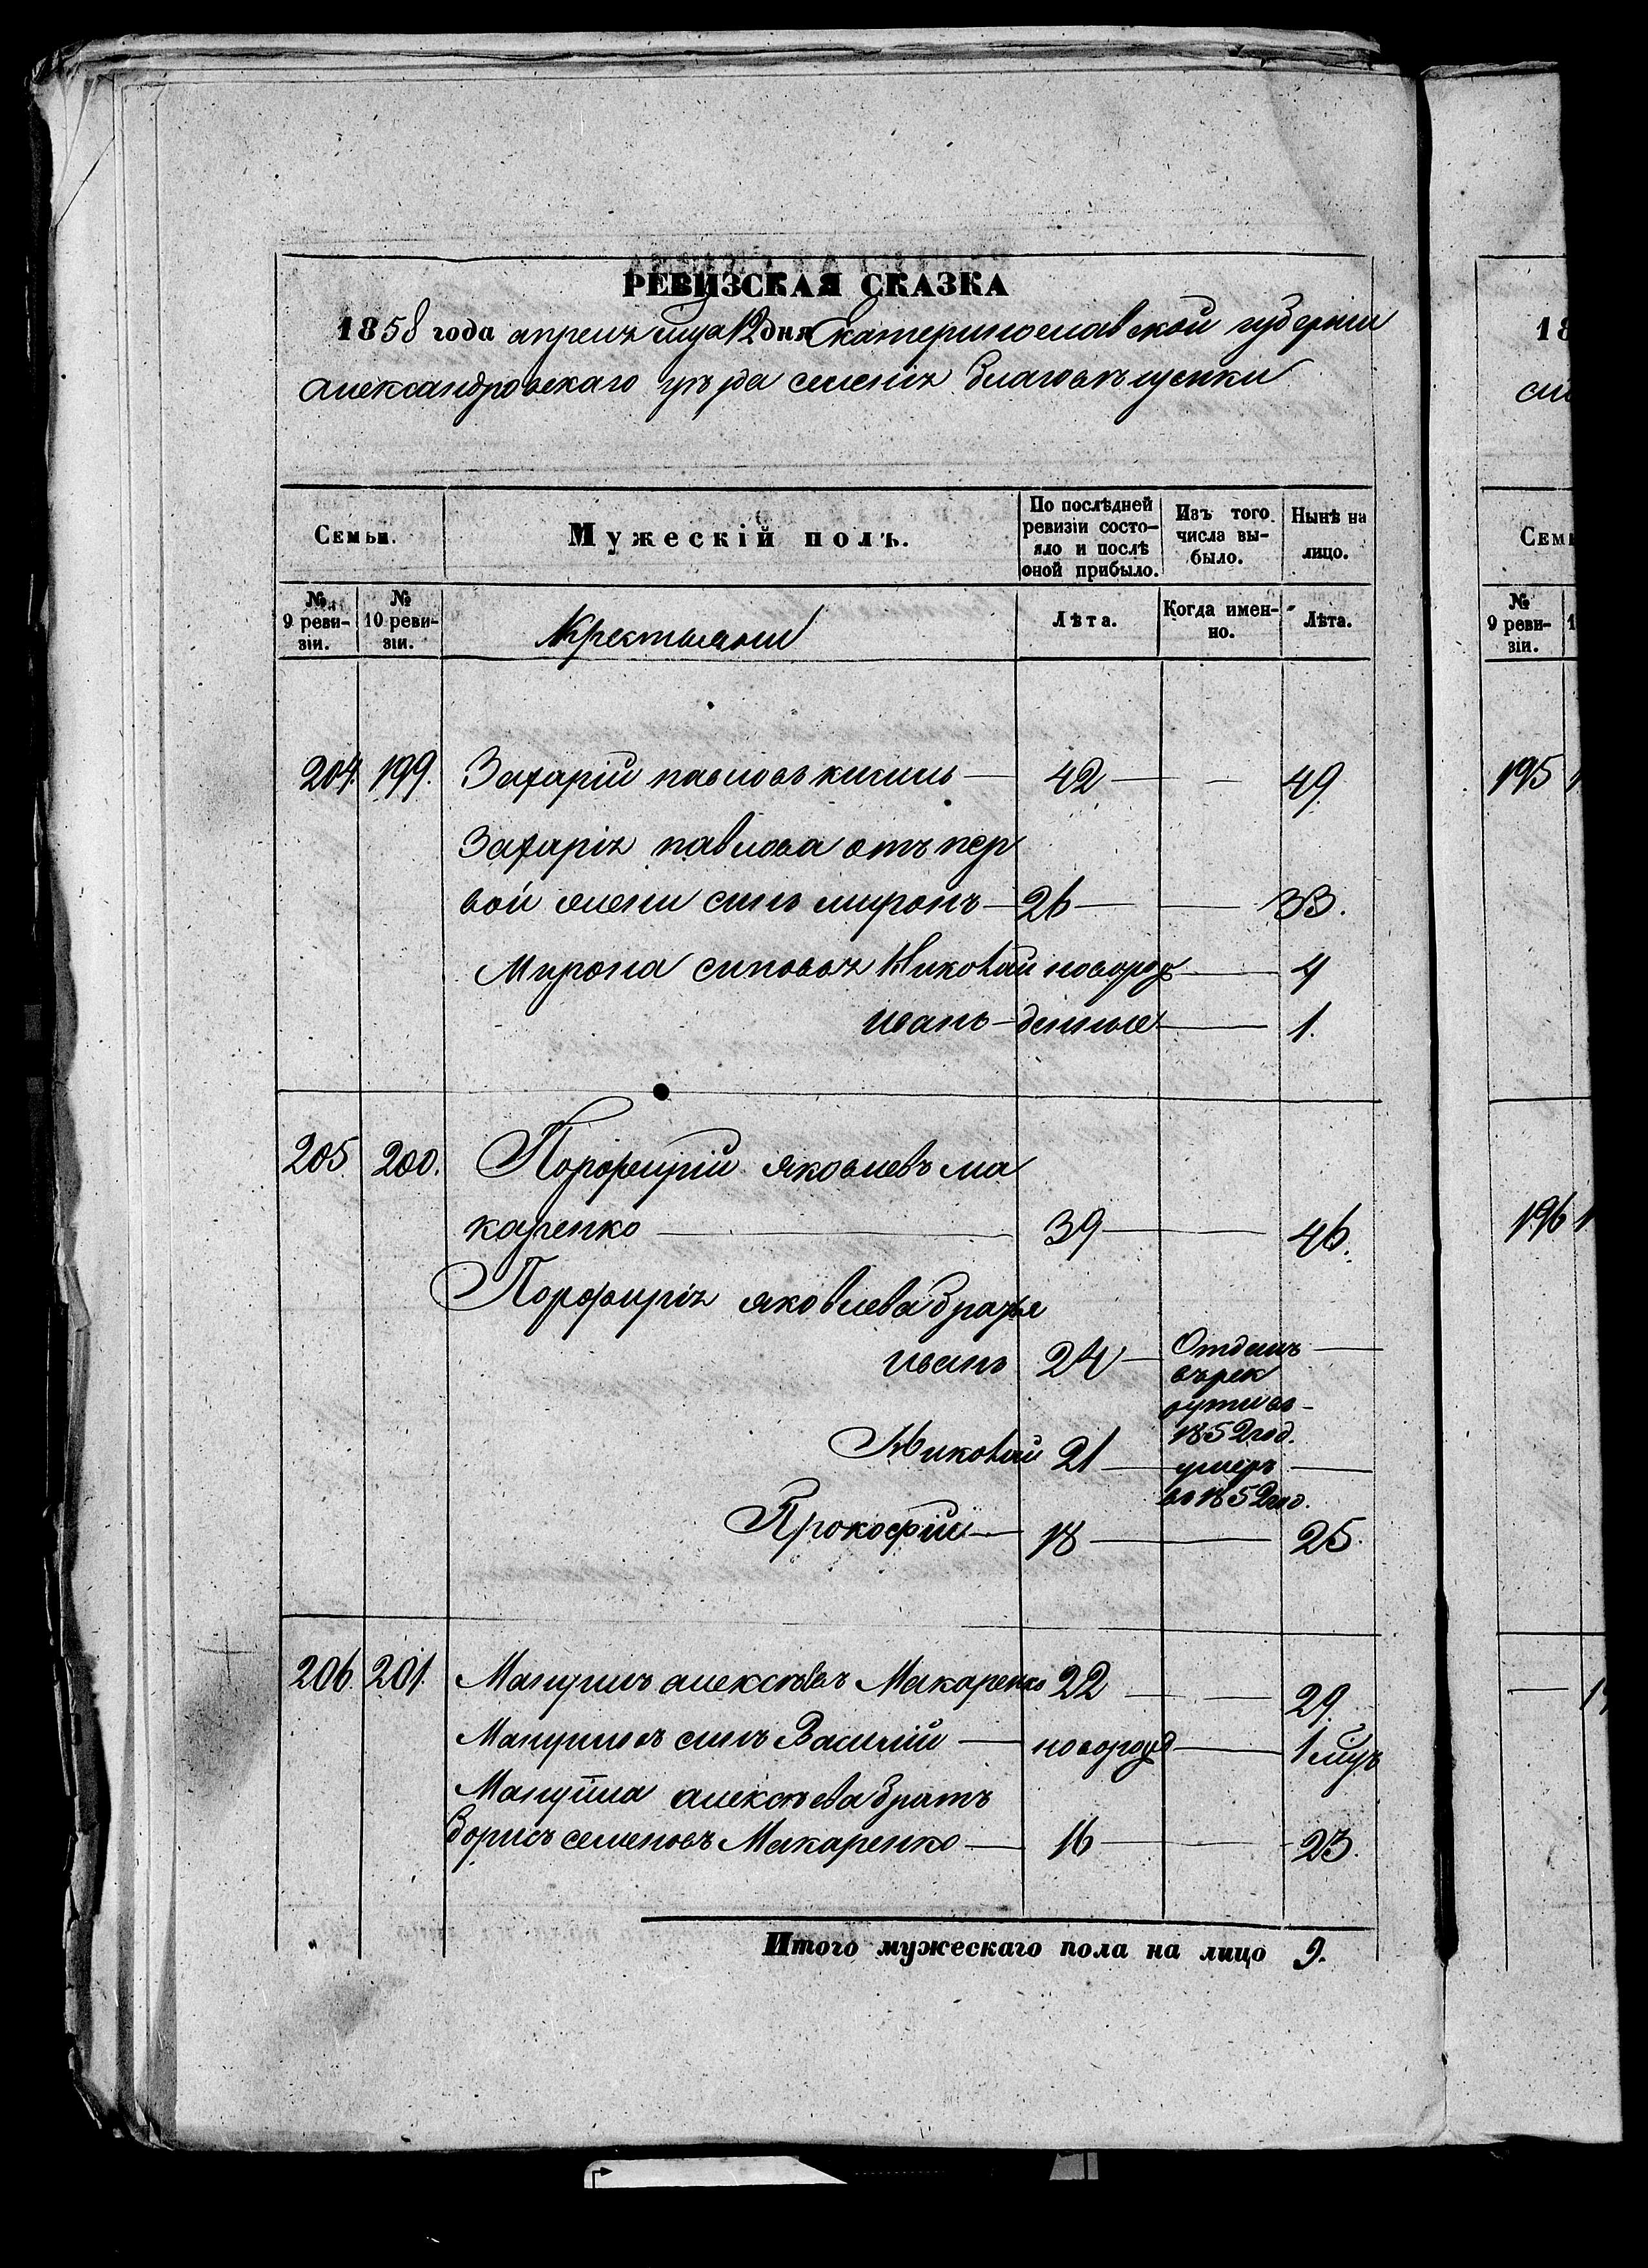 РЕВИЗСКАЯ СКАЗКА
1858 года апреля мца 12 дня Екатеринославской губернiи
александровскаго уѣзда селенiя благовѣщенки
Семьи.
Мужескiй полъ.
По послѣдней ревизiи состо-
яло и послѣ
оной прибыло.
Изъ того
числа вы-
было.
Нынѣ на
лицо.
№
9 реви-
зiи.
№
10 реви-
зiи.
Крестьяни
Лѣта.
Когда имен-
но.
Лѣта.
204. 199. Захарiй павловъ — 42 — — 49
Захарiя павлова отъ пер
вой жени синъ миронъ — 26 — — 33.
Мирона синовья Николай новорож — 4
иванъ — денные — 1.
205 200. Порфирiй яковлевъ ма
каренко — 39 — — 46.
Порфирiя яковлева братья
иванъ 24 — Отданъ —
въ рек
рути въ —
1852 год.
Николай 21 — умеръ —
въ 1852 год.
Прокофiй — 18 — 25.
206. 201. Мануилъ алексѣевъ Макаренко 22 — — 29
Мануилъ синъ Василiй — новорожд — 1 мцъ
Мануила алексѣева братъ
борисъ семеновъ Макаренко — 16 — 23.
Итого мужескаго пола на лицо 9.
18
Семь
№
9 реви-
зiи.
195
196